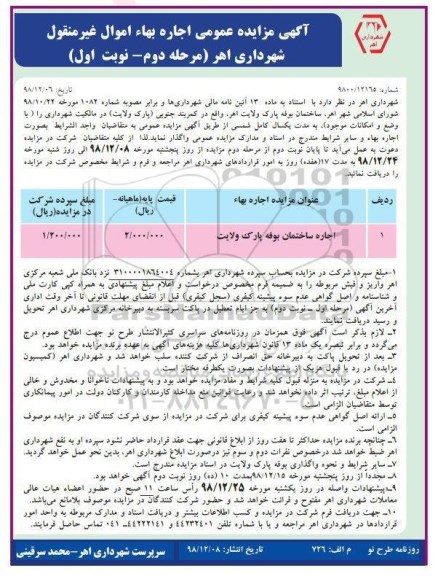 آگهی مزایده عمومی اجاره بهاء اموال غیرمنقول
شهرداری اهر (مرحله دوم- نوبت اول)
شماره: ۹۸۰۰/۱۲۱۶۵
تاریخ: ۹۸/۱۲/۰۶
شهرداری اهر در نظر دارد با استناد به ماده ۱۳ آئین نامه مالی شهرداری‌ها و برابر مصوبه شماره ۱۰۸۲ مورخه ۹۸/۱۰/۲۲
شورای اسلامی شهر اهر، ساختمان بوفه پارک ولایت اهر، واقع در کمربند جنوبی (پارک ولایت) در مالکیت شهرداری را ( با
وضع و امکانات موجود)، به مدت یکسال کامل شمسی از طریق آگهی مزایده عمومی به متقاضیان واجد الشرایط بصورت
اجاره بهاء و سایر شرایط مندرج در اسناد و مدارک مزایده عمومی واگذار نماید.لذا از کلیه متقاضیان شرکت در مزایده
دعوت به عمل می‌آید تا پایان نوبت دوم از مرحله دوم مزایده از روز پنجشنبه مورخه ۹۸/۱۲/۰۸ الی روز شنبه مورخه
۹۸/۱۲/۲۴ به مدت ۱۷(هفده) روز به امور قراردادهای شهرداری اهر مراجعه و فرم و شرایط مخصوص شرکت در مزایده
را دریافت نمائید.
ردیف
عنوان مزایده اجاره بهاء
قیمت پایه(ماهیانه- ریال)
مبلغ سپرده شرکت در مزایده(ریال)
۱
اجاره ساختمان بوفه پارک ولایت
۲/۰۰۰/۰۰۰
۱/۲۰۰/۰۰۰
۱-مبلغ سپرده شرکت در مزایده بحساب سپرده شهرداری اهر بشماره ۳۱۰۰۰۰۱۸۶۴۰۰۴ نزد بانک ملی شعبه مرکزی
اهر واریز و فیش مربوطه را به ضمیمه فرم مخصوص درخواست و اعلام مبلغ پیشنهادی به همراه کپی کارت ملی
و شناسنامه و اصل گواهی عدم سوء پیشینه کیفری (سجل کیفری) قبل از انقضای مهلت قانونی تا آخر وقت اداری
آخرین آگهی (مرحله اول ـ نوبت دوم) به جز ایام تعطیل در پاکت دربسته به دبیرخانه مرکزی شهرداری اهر تحویل
و رسید دریافت نمایند.
۲ـ لازم بذکر است آگهی فوق همزمان در روزنامه‌های سراسری کثیرالانتشار طرح نو جهت اطلاع عموم درج
می‌گردد و برابر تبصره یک ماده ۱۳ قانون شهرداری‌ها کلیه هزینه‌های آگهی به عهده برنده مزایده خواهد بود.
۳ـ بعد از تحویل پاکت به دبیرخانه حق انصراف از شرکت کننده سلب خواهد شد و شهرداری اهر (کمیسیون
مزایده) در رد یا قبول هریک از پیشنهادات بصورت یکطرفه مختار است.
۴ـ شرکت در مزایده به منزله قبول کلیه شرایط و مفاد مزایده خواهد بود و به پیشنهادات ناخوانا و مخدوش و خالی
از اعلام مبلغ، ترتیب اثر داده نخواهد شد و رعایت قوانین منع مداخله کارمندان و کارکنان دولت در امور پیمانکاری
توسط متقاضیان الزامی است.
۵ـ ارائه اصل گواهی عدم سوء پیشینه کیفری برای شرکت در مزایده از سوی شرکت کنندگان در مزایده موصوف
الزامی است.
۶ـ چنانچه برنده مزایده حداکثر تا هفت روز از ابلاغ قانونی جهت عقد قرارداد حاضر نشود سپرده او به نفع شهرداری
اهر ضبط خواهد شد درخصوص نفرات دوم و سوم نیز درصورت ابلاغ شهرداری اهر، بدین نحو عمل خواهد گردید.
۷ـ سایر شرایط و نحوه واگذاری بوفه پارک ولایت در اسناد مزایده مندرج است.
۸ـ مجدداً از روز پنجشنبه مورخه ۹۸/۱۲/۱۵ بمدت ۱۰ (ده) روز نوبت دوم آگهی خواهد بود.
۹ـ پیشنهادات واصله در روز یکشنبه مورخه ۹۸/۱۲/۲۵ رأس ساعت ۱۱ صبح در حضور اعضاء هیات عالی
معاملات شهرداری اهر مفتوح و قرائت خواهد شد و حضور شرکت کنندگان در مزایده موصوف بلامانع می‌باشد.
۱۰ـ جهت دریافت فرم شرکت در مزایده و کسب اطلاعات بیشتر و دریافت اسناد و مدارک مربوطه به واحد امور
قراردادها در شهرداری اهر مراجعه و یا با شماره تلفن ۴۴۲۳۲۴۰۱ و ۴۴۲۲۲۱۴۱ـ ۰۴۱ تماس حاصل فرمایند.
روزنامه طرح نو
م الف: ۷۲۶
تاریخ انتشار: ۹۸/۱۲/۰۸
سرپرست شهرداری اهر-محمد سرفینی